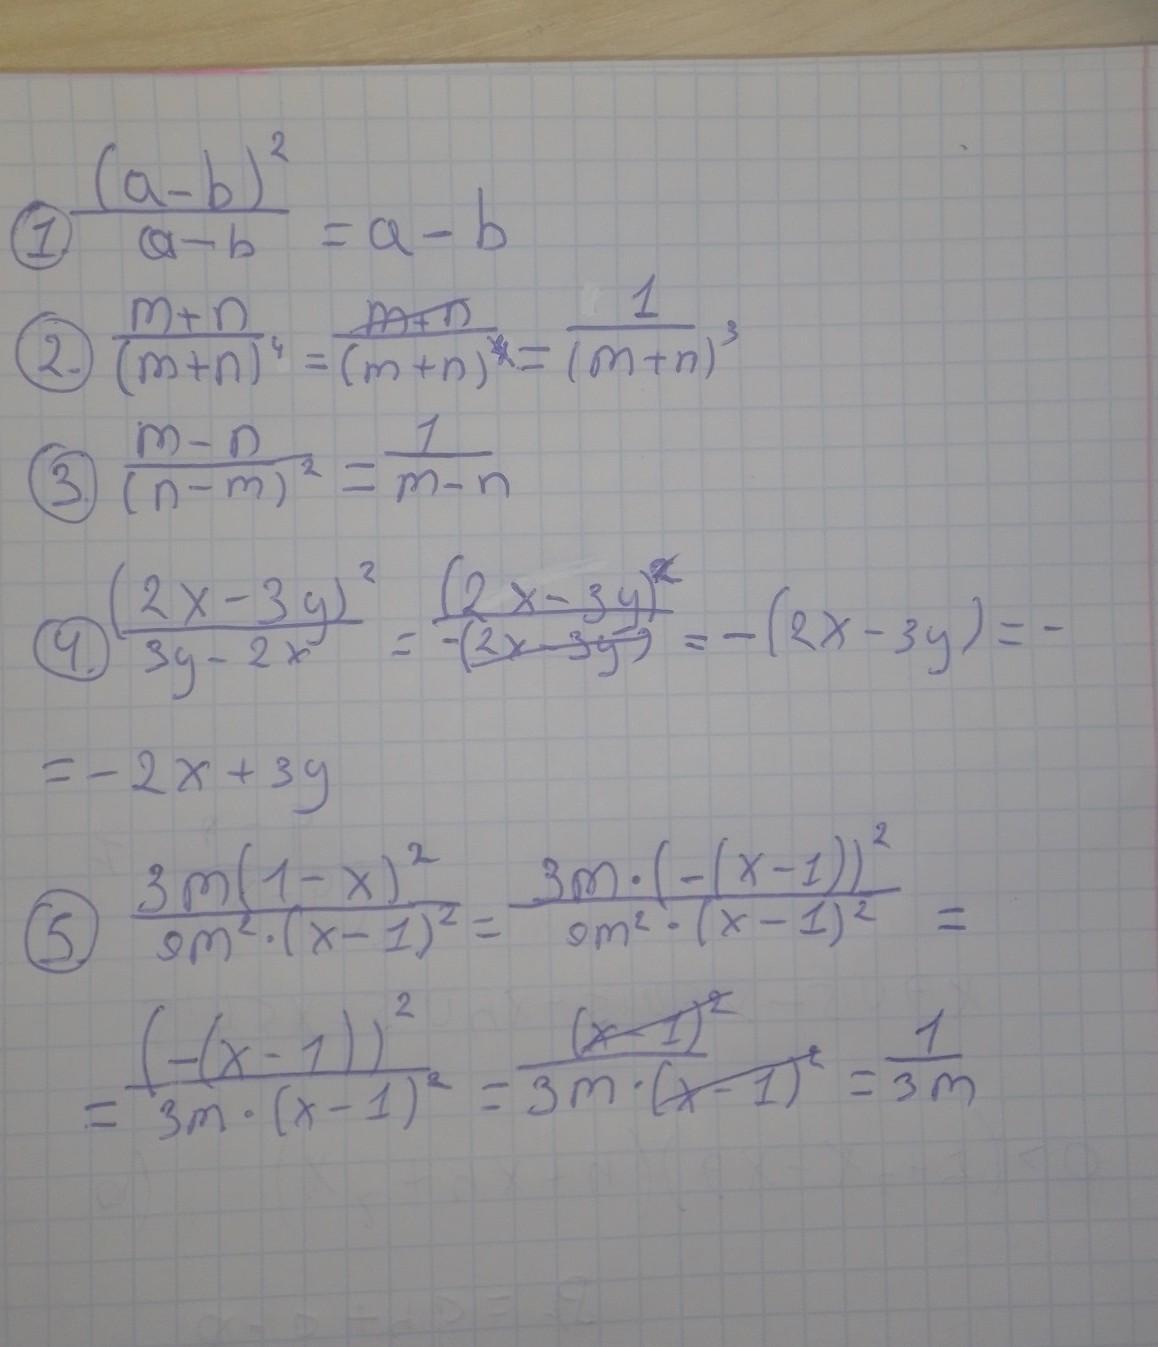 1. (a-b)²/(a-b) = a-b
2. (m+n)/(m+n)⁴ = (m+n)/(m+n)⁴ = 1/(m+n)³
3. (m-n)/(n-m)² = 1/(m-n)
4. (2x-3y)²/(3y-2x) = (2x-3y)²/(-(2x-3y)) = -(2x-3y) = -
= -2x+3y
5. 3m(1-x)²/(9m²·(x-1)²) = 3m·(-(x-1))²/(9m²·(x-1)²) =
= (-(x-1))²/(3m·(x-1)²) = (x-1)²/(3m·(x-1)²) = 1/(3m)